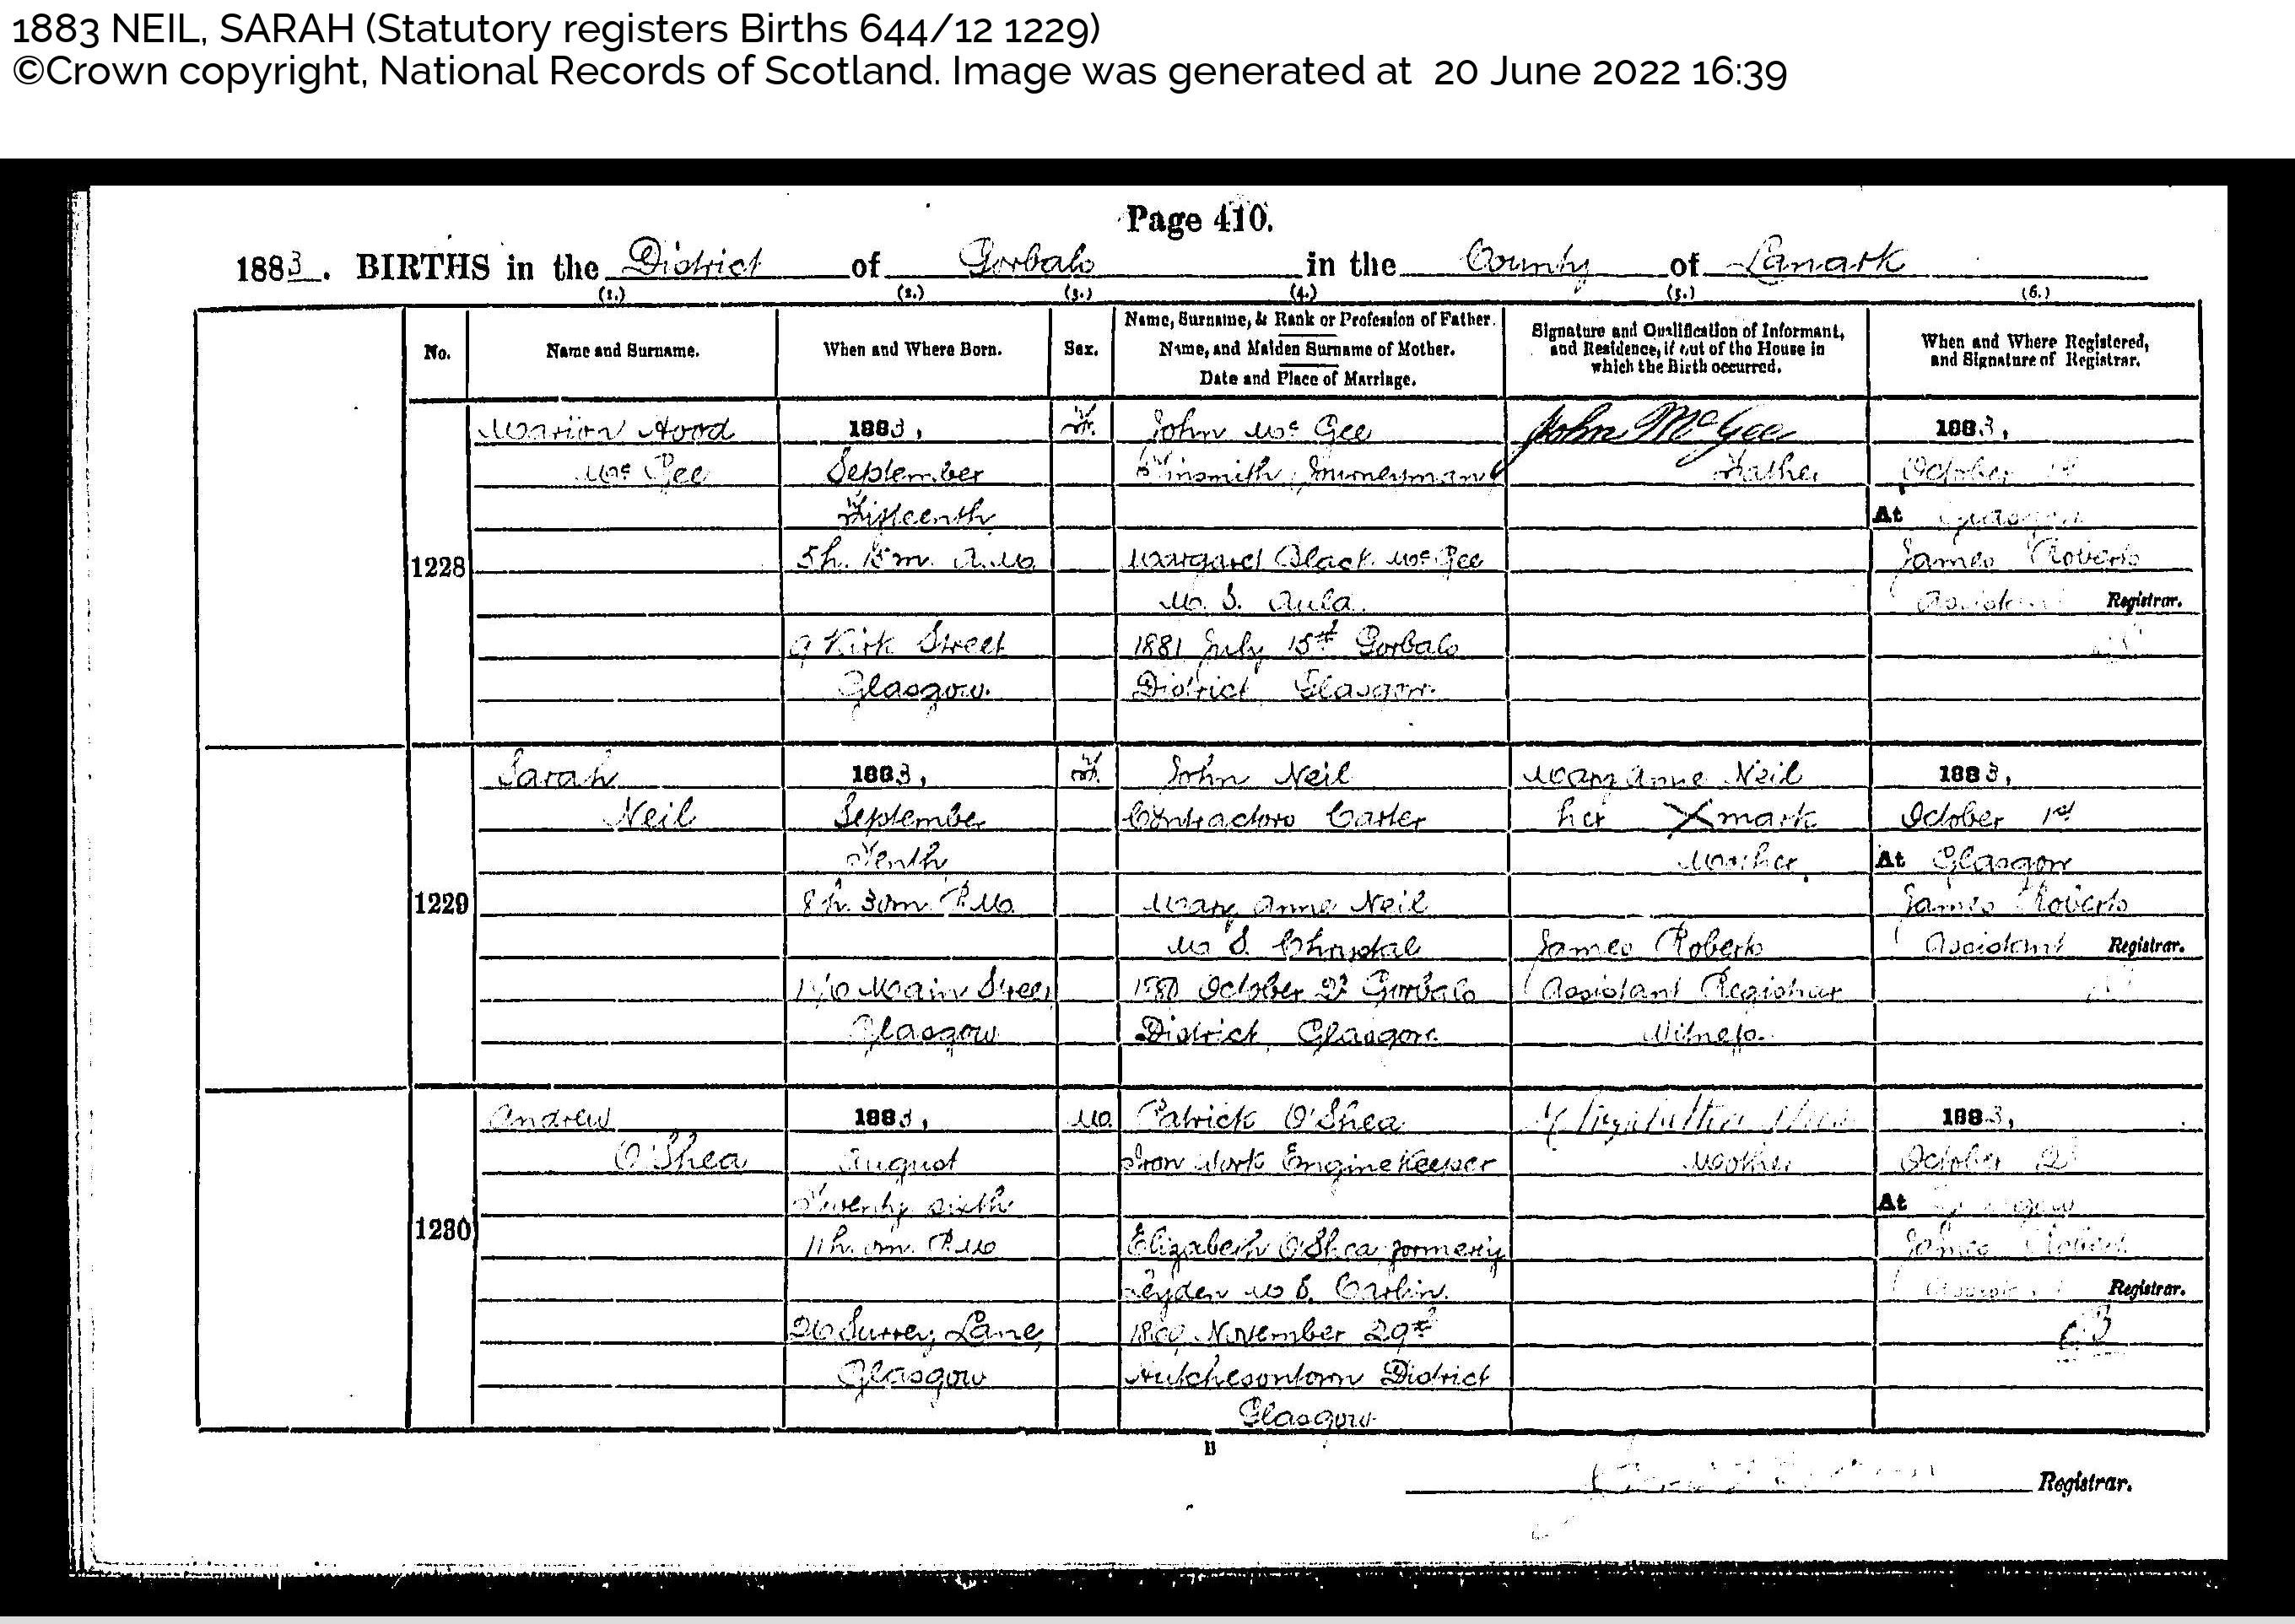 1883 NEIL, SARAH (Statutory registers Births 644/12 1229)
©Crown copyright, National Records of Scotland. Image was generated at 20 June 2022 16:39
Page 410.
1883. BIRTHS in the District of Gorbals in the County of Lanark
(1.) (2.) (3.) (4.) (5.) (6.)
No.
Name and Surname.
When and Where Born.
Sex.
Name, Surname, & Rank or Profession of Father.
Name, and Maiden Surname of Mother.
Date and Place of Marriage.
Signature and Qualification of Informant,
and Residence, if out of the House in
which the Birth occurred.
When and Where Registered,
and Signature of Registrar.
1228
Marion Hood
McGee
1883,
September
Fifteenth
5h. 15m. A.M.
9 Kirk Street
Glasgow.
F.
John McGee
Tinsmith, Journeyman
Margaret Black McGee
M.S. Auld
1881 July 15th Gorbals
District Glasgow.
John McGee
Father
1883,
October 1st
At Glasgow
James Roberts
Assistant Registrar.
1229
Sarah
Neil
1883,
September
Tenth
8h. 30m. P.M.
Main Street
Glasgow
F.
John Neil
Contractors Carter
Mary Anne Neil
M.S. Chrystal
October Gorbals
District, Glasgow.
Mary Anne Neil
her X mark
Mother.
James Roberts
Assistant Registrar
Witness.
1883,
October 1st
At Glasgow
James Roberts
Assistant Registrar.
1230
Andrew
O'Shea
1883,
August
Twenty sixth
11h. 0m. P.M.
26 Surrey Lane,
Glasgow
M.
Patrick O'Shea
Iron Work Engine Keeper
Elizabeth O'Shea formerly
Leyden M.S. Carlin.
1869 November 29th
Hutchesontown District
Glasgow
Mother
1883,
October 2d
At Glasgow
James Roberts
Assistant Registrar.
B
Registrar.